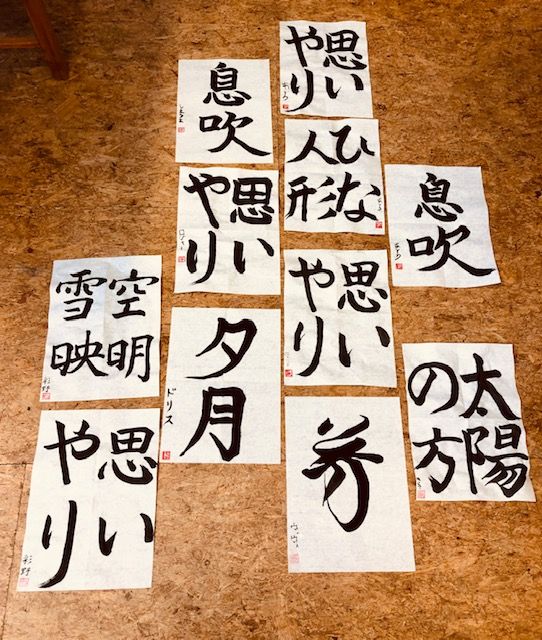 思い
やり
息吹
ひな
人形
思い
やり
息吹
思い
やり
空明
雪映
彩野
夕月
ドリス
太陽
の方
思い
やり
彩野
芳